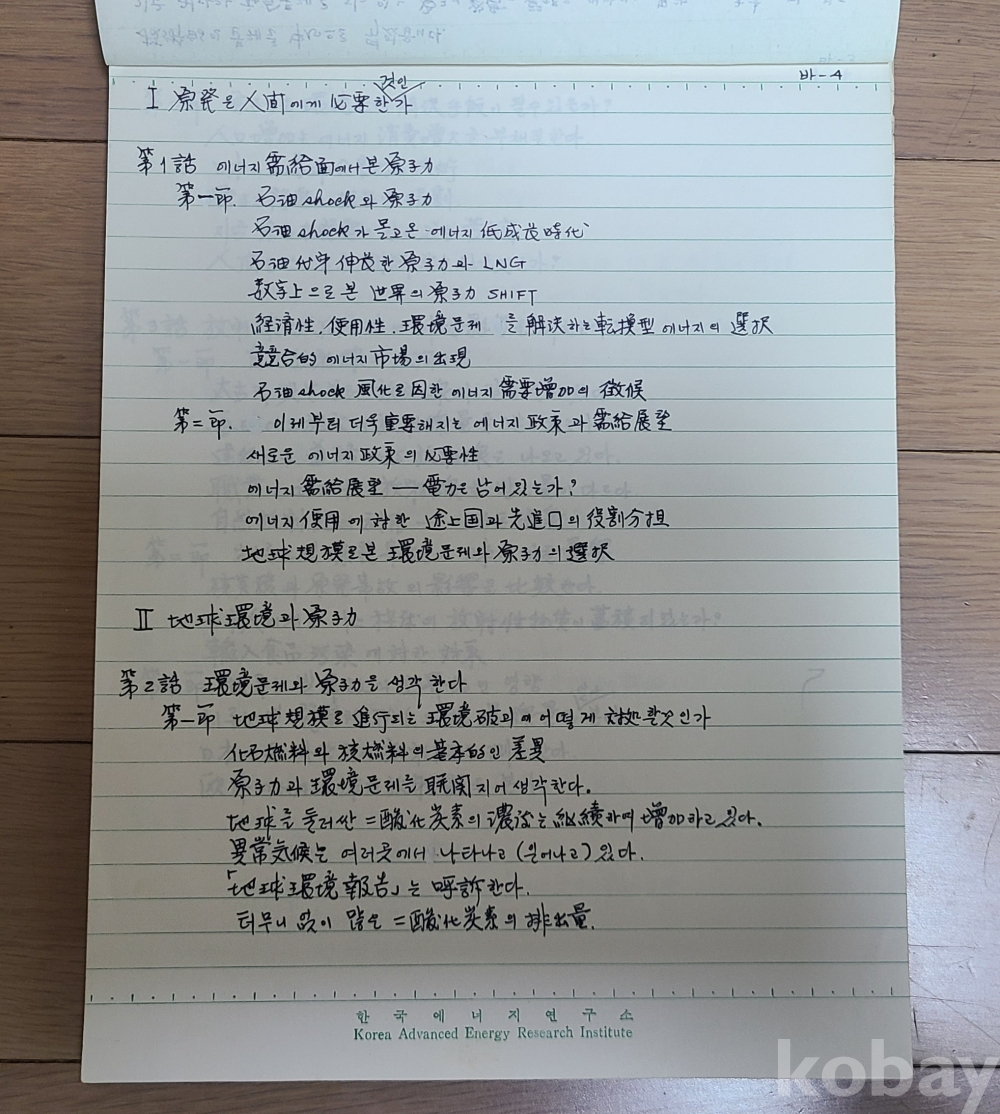 바-4
것인
I 原発은 人間에게 必要한가
第1話 에너지 需給面에서 본 原子力
第一節. 石油 shock와 原子力
石油 shock가 몰고온 에너지 低成長時代
石油 代身 伸長한 原子力과 LNG
数字上으로 본 世界의 原子力 SHIFT
経済性, 使用性, 環境문제 를 解決하는 転換型 에너지의 選択
競合的 에너지 市場의 出現
石油 shock 風化로 因한 에너지 需要增加의 徵候
第二節. 이제부터 더욱 重要해지는 에너지 政策과 需給展望
새로운 에너지 政策의 必要性
에너지 需給展望 ― 電力은 남어 있는가?
에너지 使用에 対한 途上国과 先進口의 役割分担
地球規模로 본 環境문제와 原子力의 選択
II 地球環境과 原子力
第2話 環境문제와 原子力을 생각한다
第一節 地球規模로 進行되는 環境破괴에 어떻게 対処할것인가
化石燃料와 核燃料의 基本的인 差異
原子力과 環境문제를 聯関지어 생각한다.
地球를 둘러싼 二酸化炭素의 濃度는 継続하여 增加하고 있다.
異常気候는 여러곳에서 나타나고 (일어나고) 있다.
「地球環境報告」는 呼訴한다.
터무니 없이 많은 二酸化炭素의 排出量.
한국에너지연구소
Korea Advanced Energy Research Institute
kobay